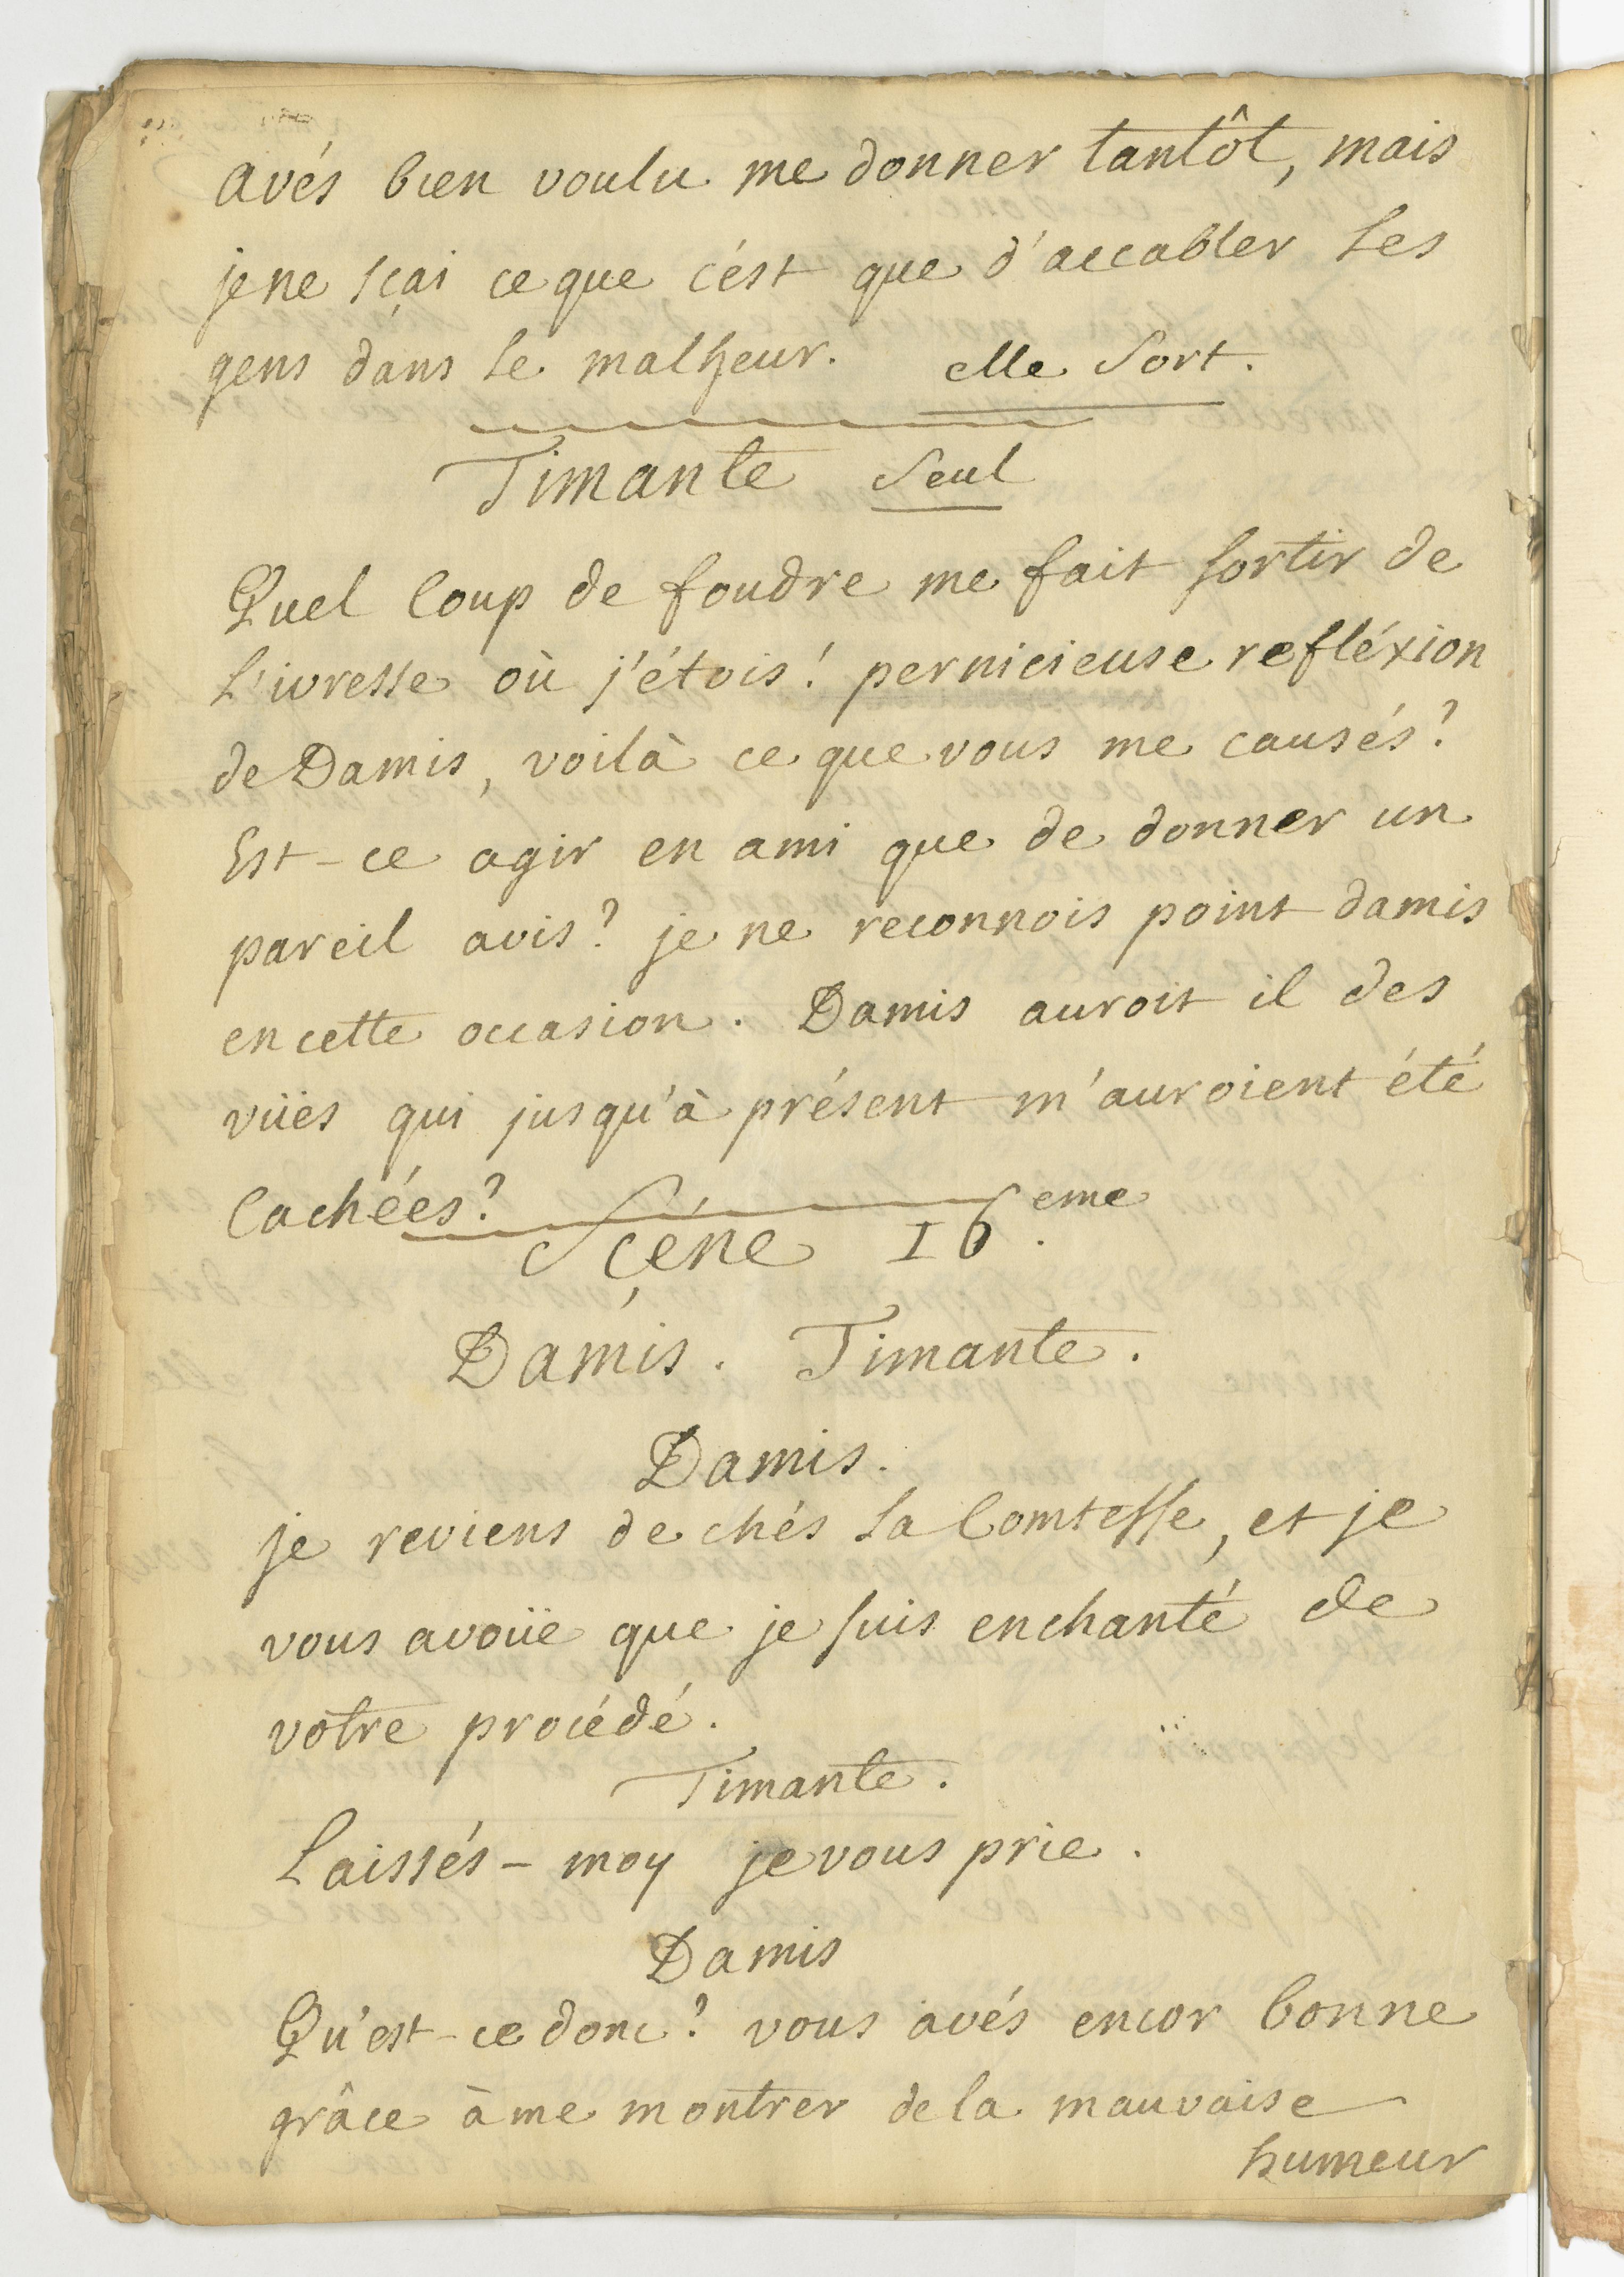 avés bien voulu me donner tantôt, mais
je ne sçai ce que c'ést que d'accabler les
gens dans le malheur. elle sort.
Timante seul
Quel coup de foudre me fait sortir de
l'ivresse où j'étois! pernicieuse refléxion
de Damis, voilà ce que vous me causés?
Est-ce agir en ami que de donner un
pareil avis? je ne reconnois point damis
en cette occasion. Damis auroit il des
vües qui jusqu'à présent m'auroient été
cachées?
Sçéne 16.eme
Damis. Timante.
Damis.
je reviens de chés la Comtesse, et je
vous avoüe que je suis enchanté de
votre procédé.
Timante.
Laissés-moy je vous prie.
Damis
Qu'est-ce donc? vous avés encor bonne
grâce à me montrer de la mauvaise
humeur